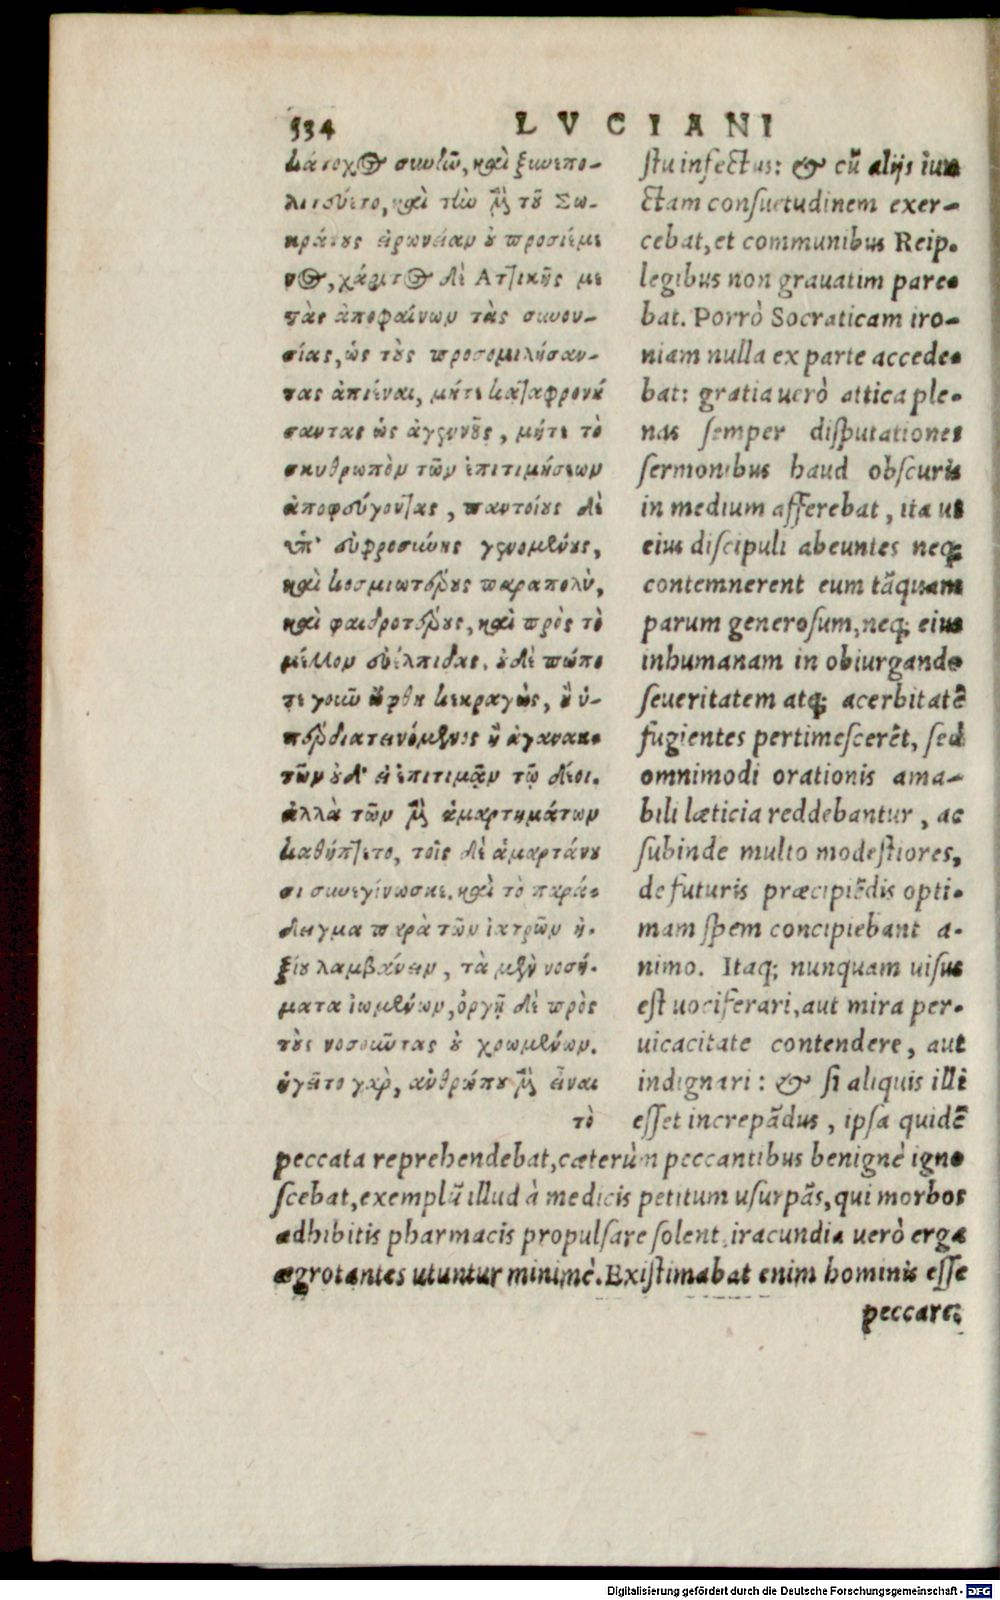 534 LVCIANI
κάτοχος συνῆν, καὶ ξυνεπο-
λιτεύετο, καὶ τὴν μὲν τοῦ Σω-
κράτους εἰρωνείαν οὐ προσιέμε
νος, χάριτος δὲ Ἀττικῆς με
τὰς ἀποφαίνων τὰς συνου-
σίας, ὡς τοὺς προσομιλήσαν-
τας ἀπιέναι, μήτε καταφρονή
σαντας ὡς ἀγεννοῦς, μήτε τὸ
σκυθρωπὸν τῶν ἐπιτιμήσεων
ἀποφεύγοντας, παντοίους δὲ
ὑπ' εὐφροσύνης γενομένους,
καὶ κοσμιωτέρους παραπολὺ,
καὶ φαιδροτέρους, καὶ πρὸς τὸ
μέλλον εὐέλπιδας. οὐδὲ πώπο
τε γοῦν ὤφθη κεκραγὼς, ἢ ὑ-
περδιατεινόμενος ἢ ἀγανακ-
τῶν οὐδ' εἰ ἐπιτιμᾷν τῳ δέοι.
ἀλλὰ τῶν μὲν ἁμαρτημάτων
καθήπτετο, τοῖς δὲ ἁμαρτάνου
σι συνεγίνωσκε. καὶ τὸ παρά-
δειγμα παρὰ τῶν ἰατρῶν ἠ-
ξίου λαμβάνειν, τὰ μὲν νοσή-
ματα ἰωμένων, ὀργῇ δὲ πρὸς
τοὺς νοσοῦντας οὐ χρωμένων.
ἡγεῖτο γὰρ, ἀνθρώπου μὲν εἶναι
τὸ
stu infectus: & cũ alijs iun
ctam consuetudinem exer-
cebat, et communibus Reip.
legibus non grauatim pare-
bat. Porrò Socraticam iro-
niam nulla ex parte accede-
bat: gratia uerò attica ple-
nas semper disputationes
sermonibus haud obscuris
in medium afferebat, ita ut
eius discipuli abeuntes neq;
contemnerent eum tãquam
parum generosum, neq; eius
inhumanam in obiurgando
seueritatem atq; acerbitatẽ
fugientes pertimescerẽt, sed
omnimodi orationis ama-
bili læticia reddebantur, ac
subinde multo modestiores,
de futuris præcipiẽdis opti-
mam spem concipiebant a-
nimo. Itaq; nunquam uisus
est uociferari, aut mira per-
uicacitate contendere, aut
indignari: & si aliquis illi
esset increpãdus, ipsa quidẽ
peccata reprehendebat, cæterùm peccantibus benignè igno
scebat, exemplũ illud à medicis petitum usurpãs, qui morbos
adhibitis pharmacis propulsare solent, iracundia uerò erga
ægrotantes utuntur minimè. Existimabat enim hominis esse
peccare:
Digitalisierung gefördert durch die Deutsche Forschungsgemeinschaft - DFG